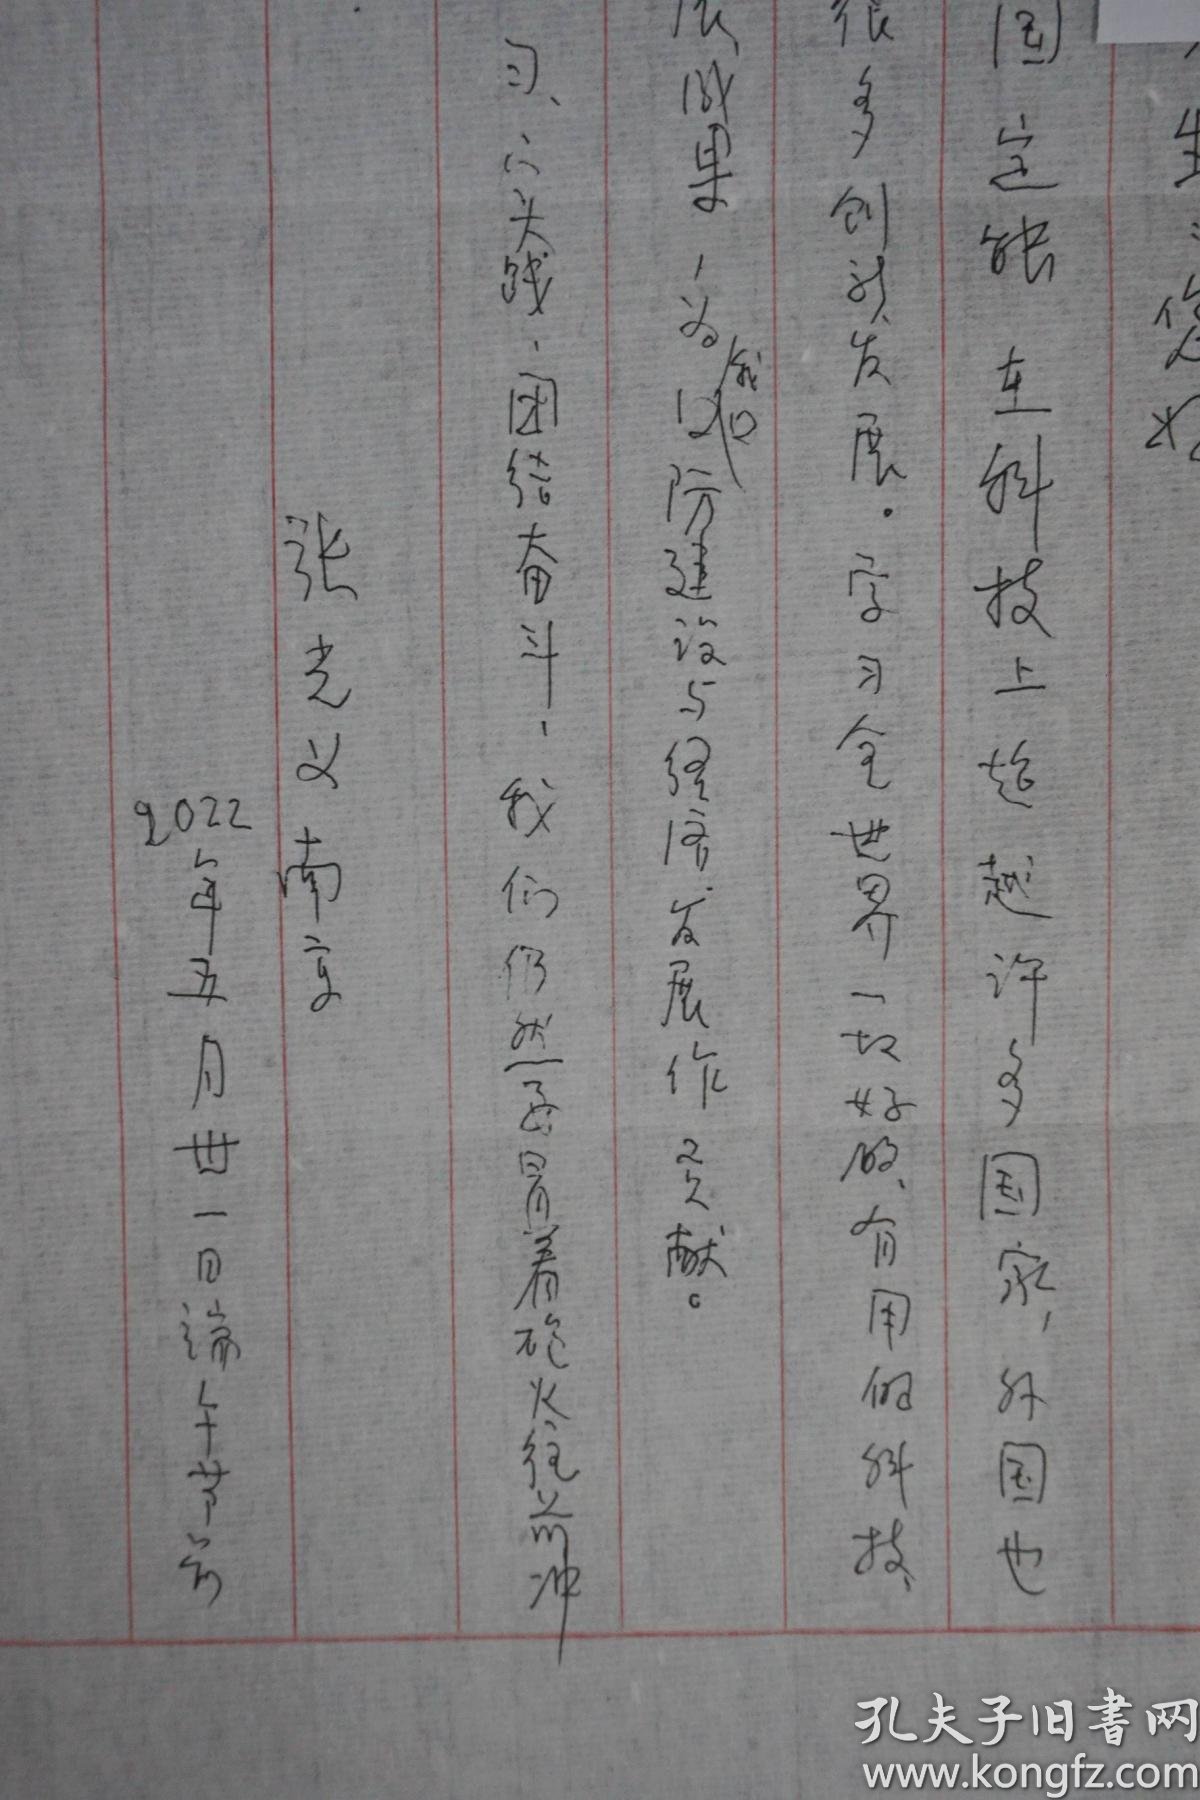 生 您好
国定能在科技上超越许多国家，外国也
很多创新发展。学习全世界一切好的、有用的科技、
展成果，为我国防建设与经济发展作文献。
习、实践，团结奋斗，我们仍然要冒着砲火往前冲
张光义南京
2022年五月廿一日端午节前
孔夫子旧书网
www.kongfz.com